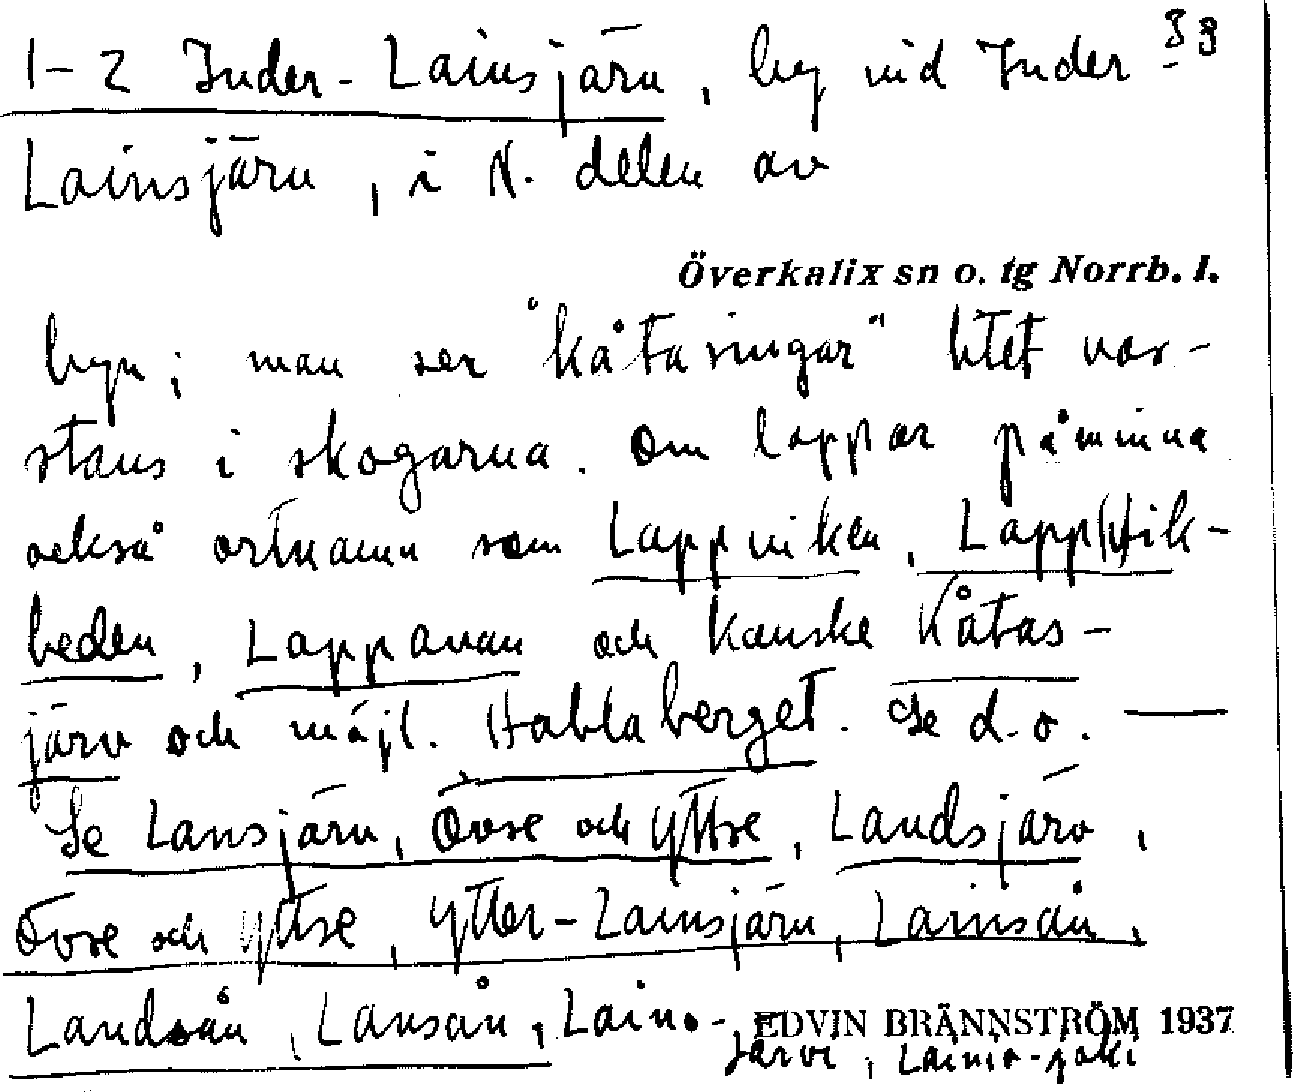 1-2 Inder-Lainsjärv, by vid Inder 33
Lainsjärv, i N. delen av
Överkalix sn o. tg Norrb. l.
byn; man ser "kåtaringar" litet var-
stans i skogarna. Om lappar påminna
också ortnamn som Lappviken, Lapp(t)ik-
heden, Lappavan och kanske Kåtas-
järv och möjl. Habblaberget. Se d.o. —
Se Lansjärv, Övse och Yttse, Landsjärv,
Övse och Yttse, Ytter-Lainsjärv, Lainsån,
Landsån, Lansån, Laino-
järvi, Lainio-joki
EDVIN BRÄNNSTRÖM 1937